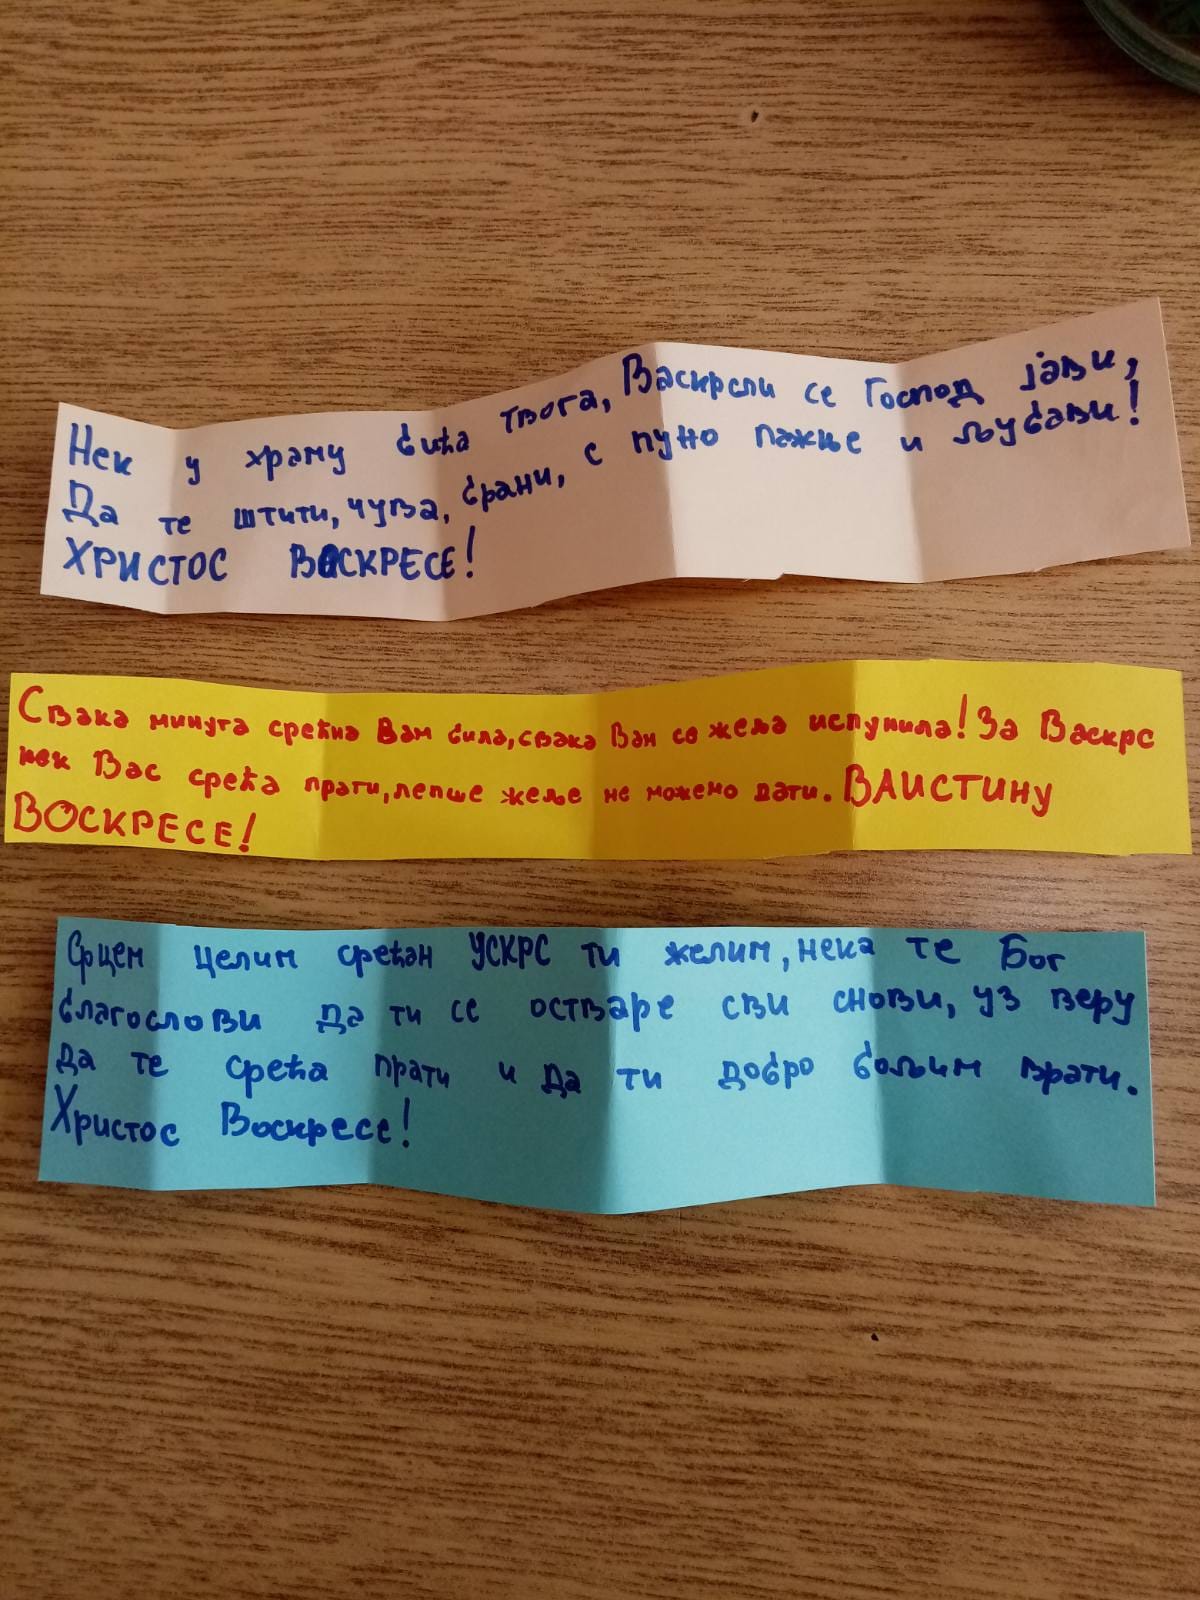 Нек у храму бића твога, Васкрсли се Господ јави,
Да те штити, чува, брани, с пуно пажње и љубави!
ХРИСТОС ВАСКРЕСЕ!
Свака минута срећна Вам била, свака Вам се жеља испунила! За Васкрс
нек Вас срећа прати, лепше жеље не можемо дати. ВАИСТИНУ
ВОСКРЕСЕ!
Срцем целим срећан УСКРС ти желим, нека те Бог
благослови да ти се остваре сви снови, уз веру
да те срећа прати и да ти добро бољим врати.
Христос Воскресе!